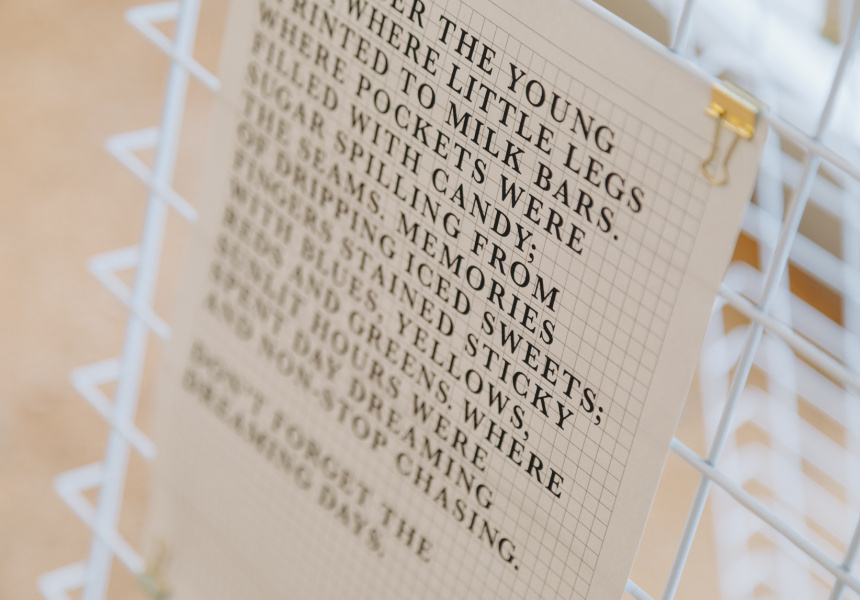 THE YOUNG
WHERE LITTLE LEGS
RINTED TO MILK BARS.
WHERE POCKETS WERE
FILLED WITH CANDY;
SUGAR SPILLING FROM
THE SEAMS. MEMORIES
OF DRIPPING ICED SWEETS;
FINGERS STAINED STICKY
WITH BLUES, YELLOWS,
REDS AND GREENS. WHERE
SUNLIT HOURS WERE
SPENT DAY DREAMING
AND NON-STOP CHASING.
DON'T FORGET THE
DREAMING DAYS.